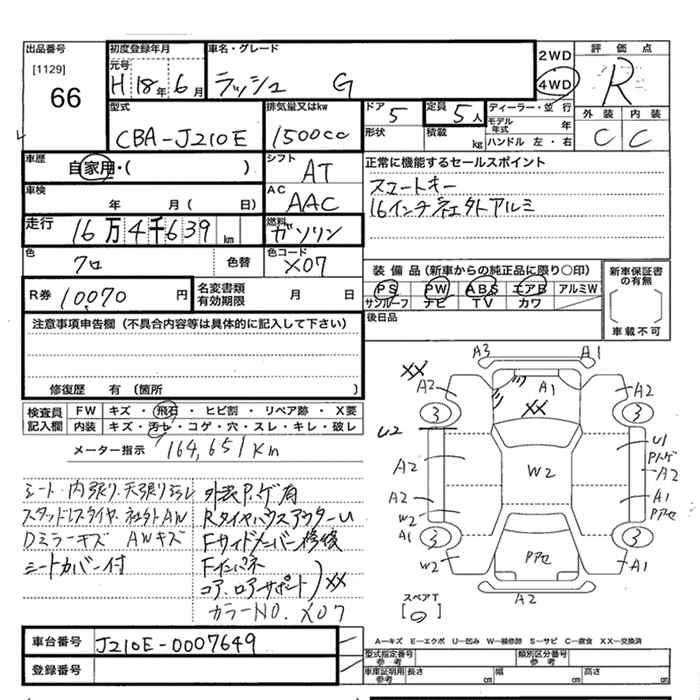 出品番号
[1129]
66
初度登録年月
元号
H 18年 6月
車名・グレード
ラッシュ G
2WD
4WD
評価点
R
型式
CBA-J210E
排気量又はkw
1500cc
ドア
5
形状
定員
5人
積載
kg
ディーラー・並行
モデル年式
年
ハンドル 左・右
外装
C
内装
C
車歴
自家用・( )
シフト
AT
正常に機能するセールスポイント
スマートキー
16インチ社外アルミ
車検
年 月( 日)
AC
AAC
走行
16万4千639km
燃料
ガソリン
色
クロ
色替
色コード
X07
装備品(新車からの純正品に限り○印)
PS PW ABS エアB アルミW
サンルーフ ナビ TV カワ
新車保証書の有無
車載不可
R券
10070円
名変書類有効期限
月 日
後日品
注意事項申告欄(不具合内容等は具体的に記入して下さい)
修復歴 有(箇所 )
検査員記入欄
FW キズ・飛石・ヒビ割・リペア跡・X要
内装 キズ・汚レ・コゲ・穴・スレ・キレ・破レ
メーター指示 164,651km
シート・内張り・天張り汚レ
スタッドレスタイヤ・社外AW
Dミラーキズ AWキズ
シートカバー付
外装P.ゲ有
RタイヤハウスアウターU
Fサイドメンバー修後
Fインパネ
コア、ロアサポート XX
カラーNO. X07
A3
A1
XX
A2
A1
A2
3
XX
3
U2
U1
A2
W2
P.ハゲ
A2
A2
A1
W2
Pアセ
A1
3
3
W2
Pアセ
A1
A2
スペアT
車台番号
J210E-0007649
登録番号
A―キズ E―エクボ U―凹み W―補修跡 S―サビ C―腐食 XX―交換済
型式指定番号
参考
類別区分番号
参考
車庫証明用
参考
長さ
cm
幅
cm
高さ
cm